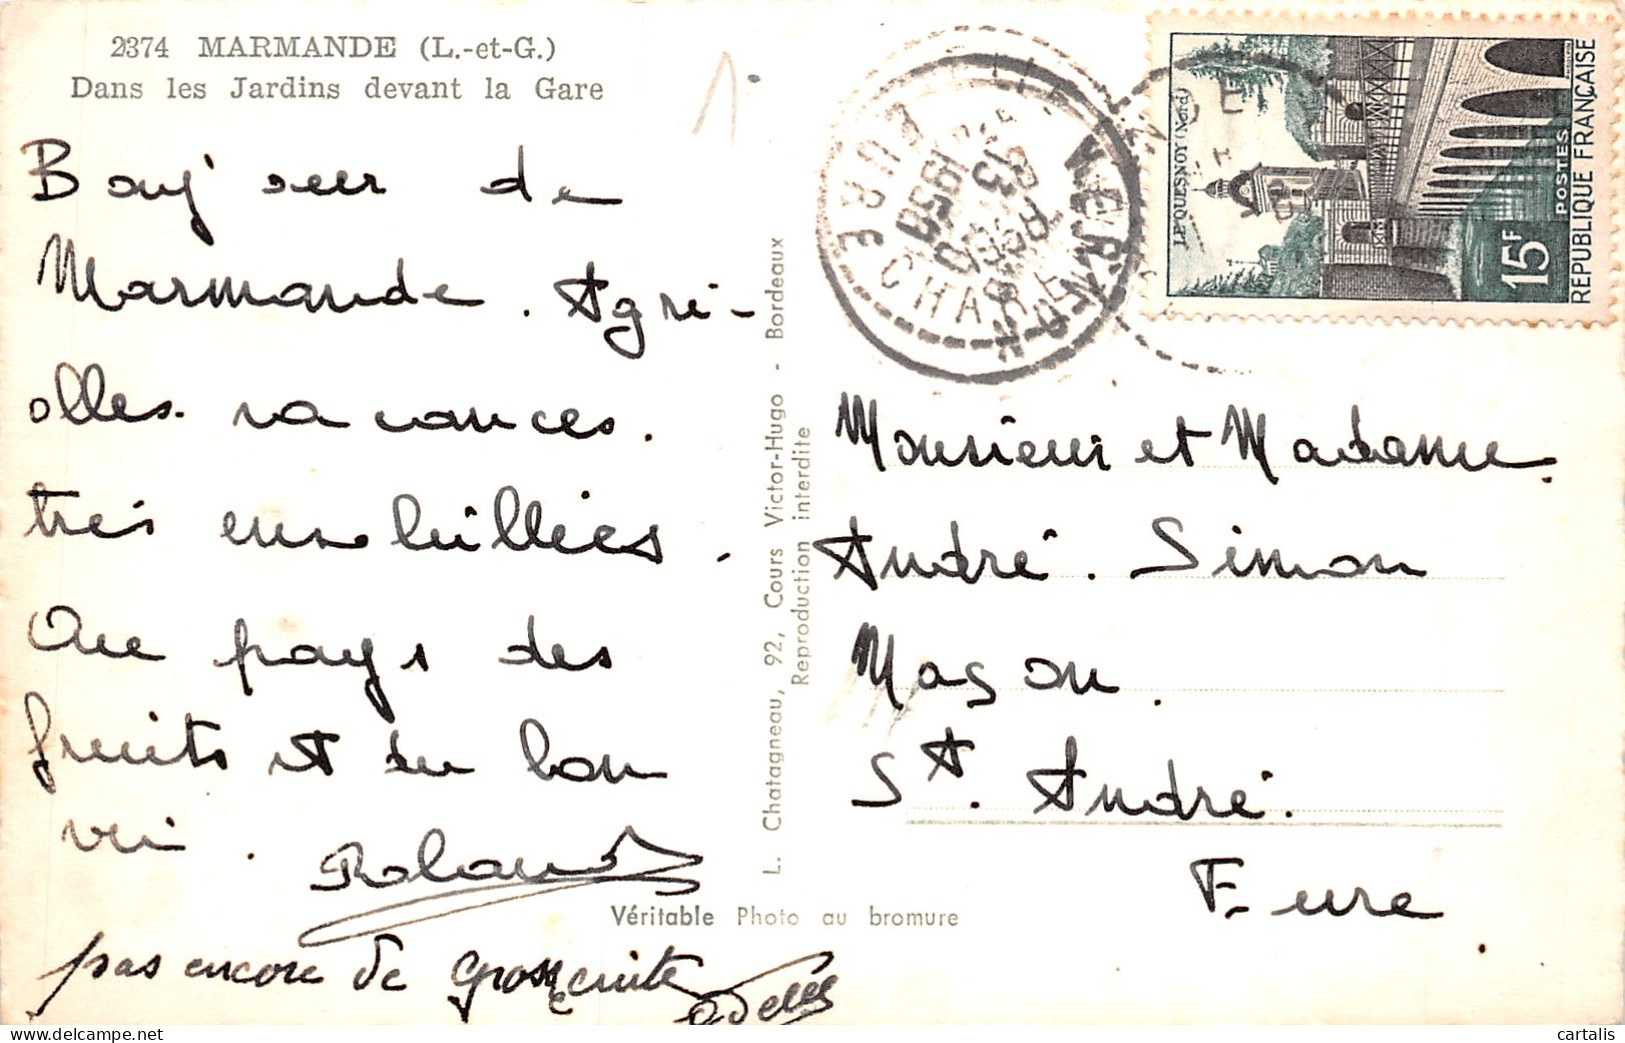 2374 MARMANDE (L.-et-G.)
Dans les Jardins devant la Gare
Bonj' sur de
Marmande. Agré-
olles vacances.
très ensoleillées.
Au pays des
fruits et du bon
vin.
Roland
pas encore de grosse cuite
Odette
L. Chatagneau, 92, Cours Victor-Hugo - Bordeaux
Reproduction interdite
Véritable Photo au bromure
VERNEUIL
EURE
13
1959
LE QUESNOY (Nord)
15F
POSTES
REPUBLIQUE FRANÇAISE
Monsieur et Madame
André. Simon
Maçon.
St. André.
Eure.
cartalis